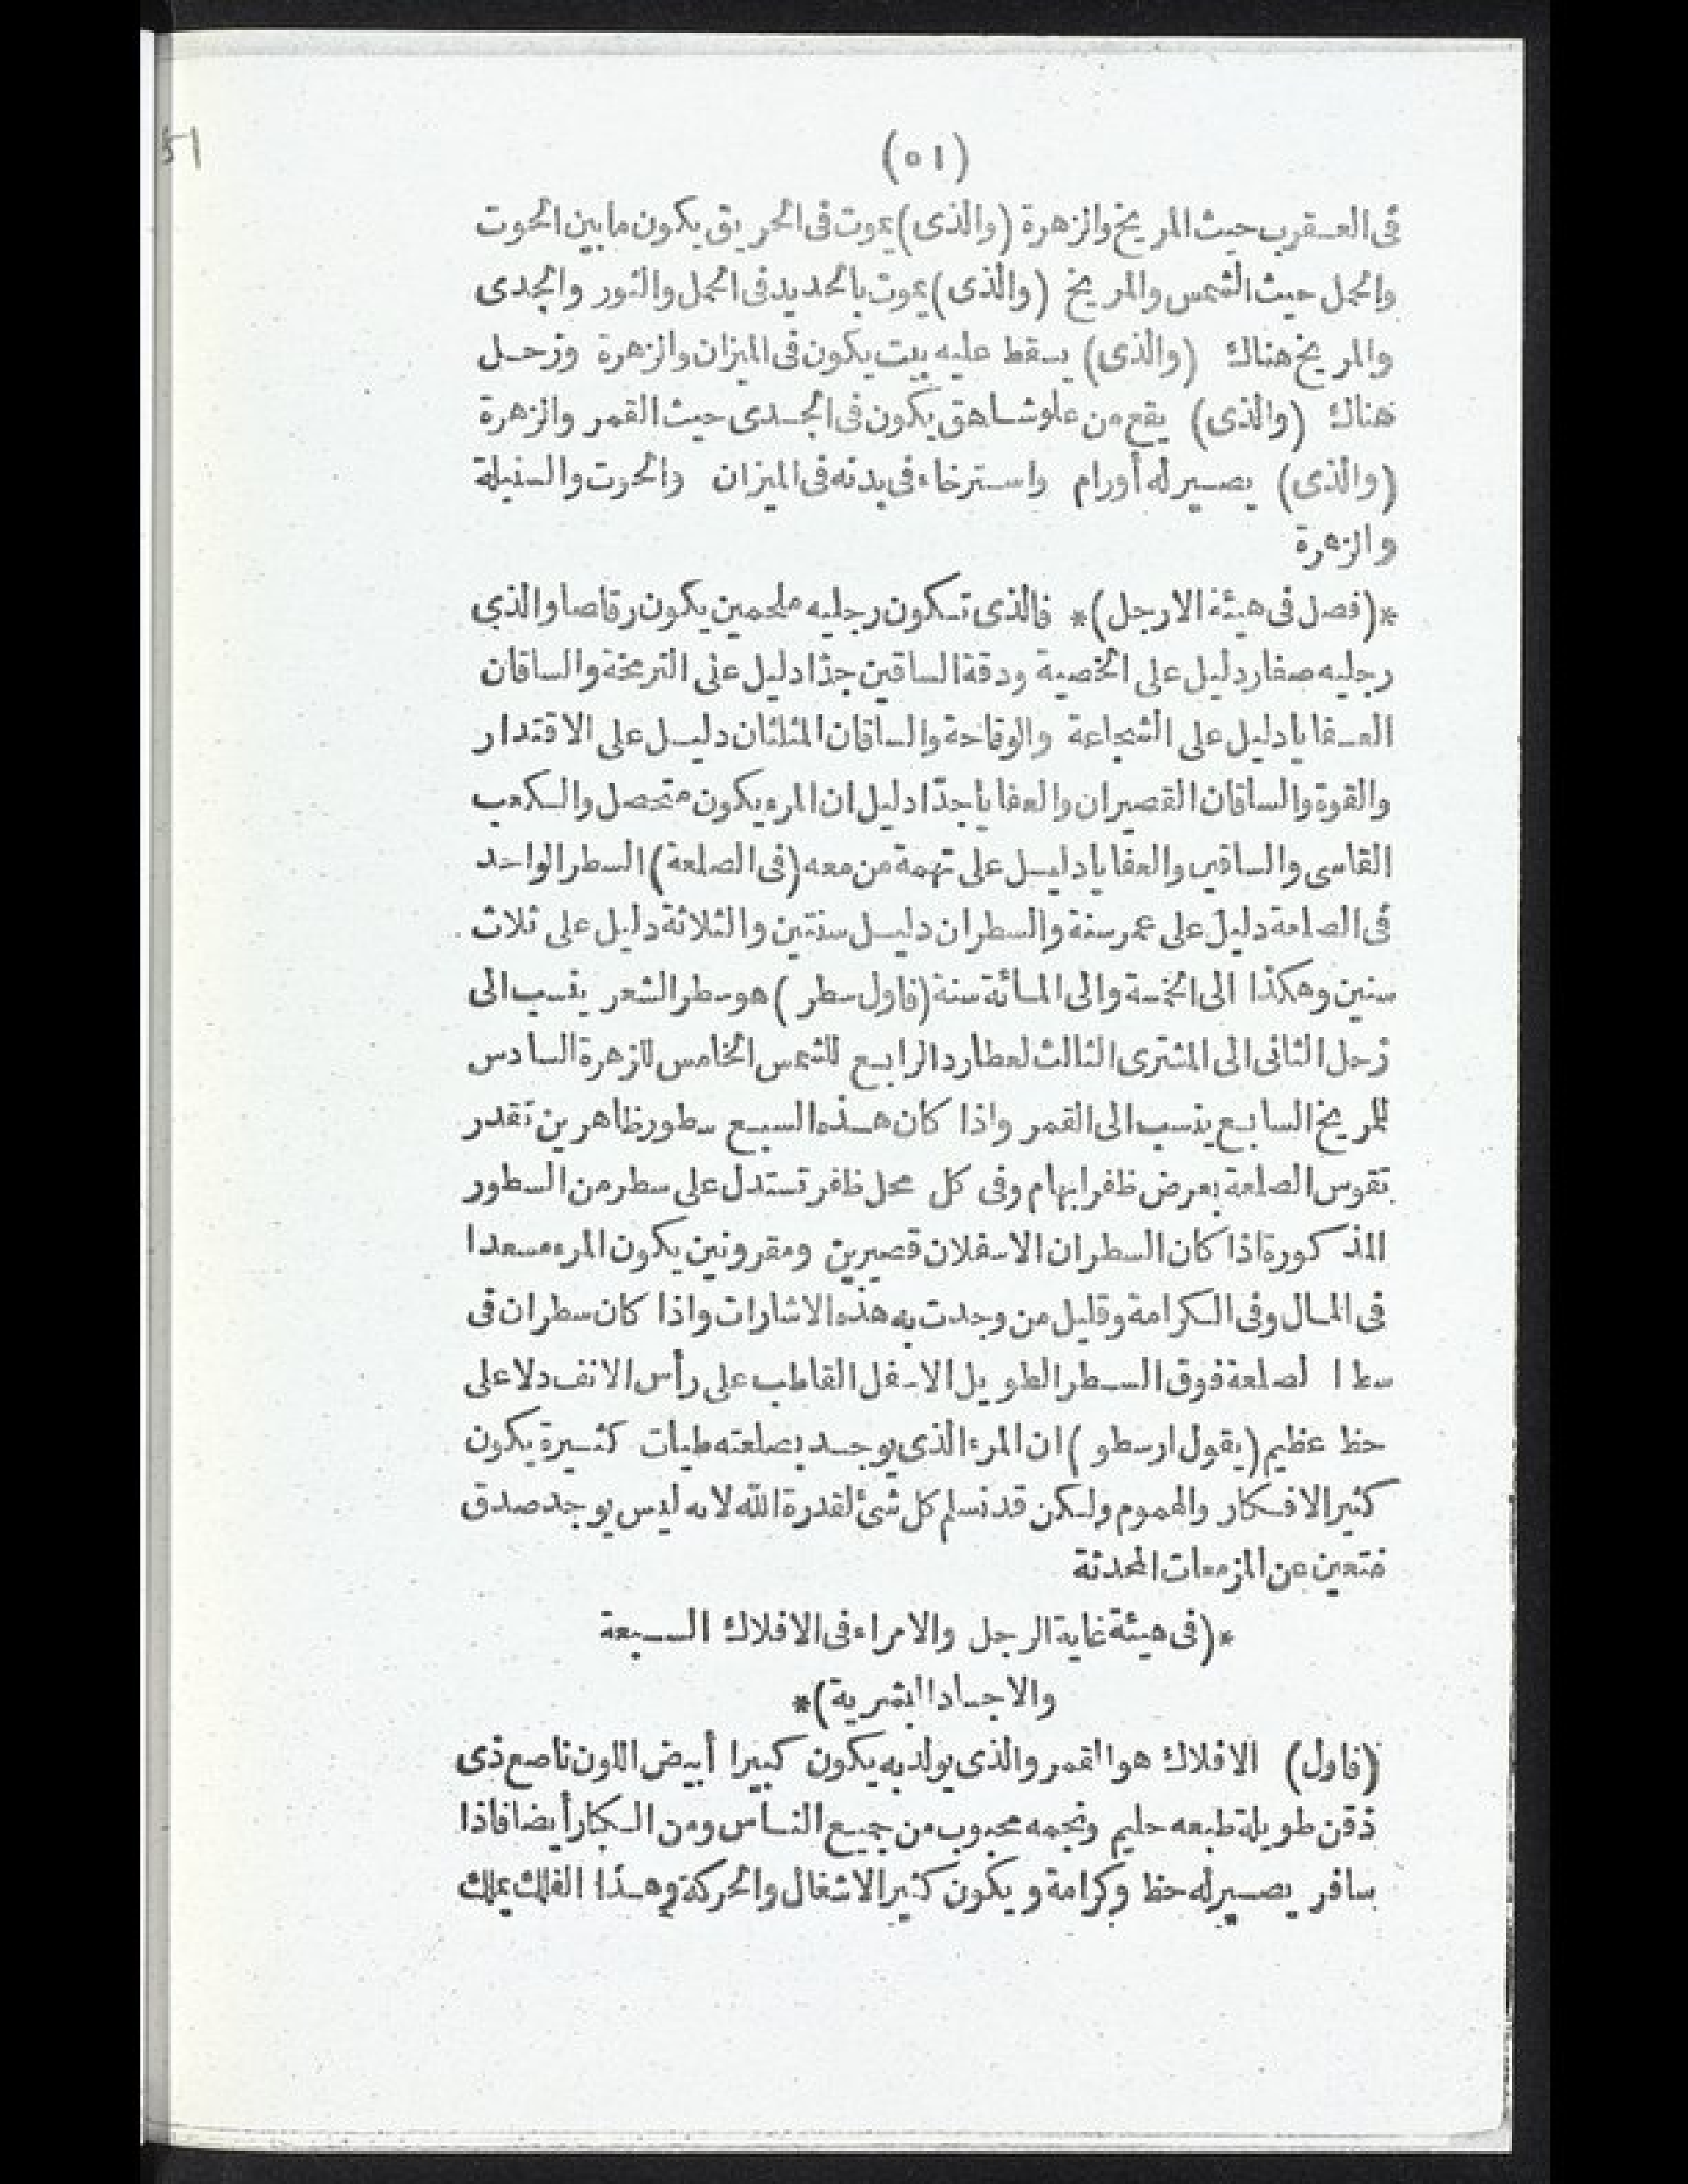 51
(٥١)
فى العقرب حيث المريخ والزهرة (والذى) يموت فى الحريق يكون مابين الحوت
والحمل حيث الشمس والمريخ (والذى) يموت بالحديد فى الحمل والثور والجدى
والمريخ هناك (والذى) يسقط عليه بيت يكون فى الميزان والزهرة وزحل
هناك (والذى) يقع من علو شاهق يكون فى الجدى حيث القمر والزهرة
(والذى) يصير له أورام واسترخاء فى بدنه فى الميزان والحوت والسنبلة
والزهرة
*(فصل فى هيئة الارجل)* فالذى تكون رجليه ملحمين يكون رقاصا والذي
رجليه صغار دليل على الخصية ودقة الساقين جدّا دليل على والساقان
العفايا دليل على الشجاعة والوقاحة والساقان دليل على الاقتدار
والقوة والساقان القصيران والعفايا جدّا دليل ان المرء يكون متحصل والكعب
القاسى والساقين والعفايا دليل على تهمة من معه (فى الصلعة) السطر الواحد
فى الصلعة دليل على عمر سنة والسطران دليل سنتين والثلاثة دليل على ثلاث
سنين وهكذا الى الخمسة والى المائة سنة (فاول سطر) هو سطر الشعر ينسب الى
زحل الثانى الى المشترى الثالث لعطارد الرابع للشمس الخامس للزهرة السادس
للمريخ السابع ينسب الى القمر واذا كان هذه السبع سطور ظاهرين تقدر
تقوس الصلعة بعرض ظفر ابهام وفى كل محل ظافر تستدل على سطر من السطور
المذكورة اذا كان السطران الاسفلان قصيرين ومقرونين يكون المرء مسعدا
فى المال وفى الكرامة وقليل من وجدت به هذه الاشارات واذا كان سطران فى
سطا لصلعة فوق السطر الطويل الاسفل القاطب على رأس الانف دلا على
حظ عظيم (يقول ارسطو) ان المرء الذى يوجد بصلعته طيات كثيرة يكون
كثير الافكار والهموم ولكن قد نسلم كل شئ لقدرة الله لانه ليس يوجد صدق
متعين عن المزمعات المحدثة
*(فى هيئة غاية الرجل والامراء فى الافلاك السبعة
والاجساد البشرية)*
(فاول) الافلاك هو القمر والذى يولد به يكون كبيرا أبيض اللون ناصع ذى
ذقن طويلة طبعه حليم ونجمه محبوب من جميع الناس ومن الكبار أيضا فاذا
سافر يصير له حظ وكرامة ويكون كثير الاشغال والحركة وهذا الفلك يملك